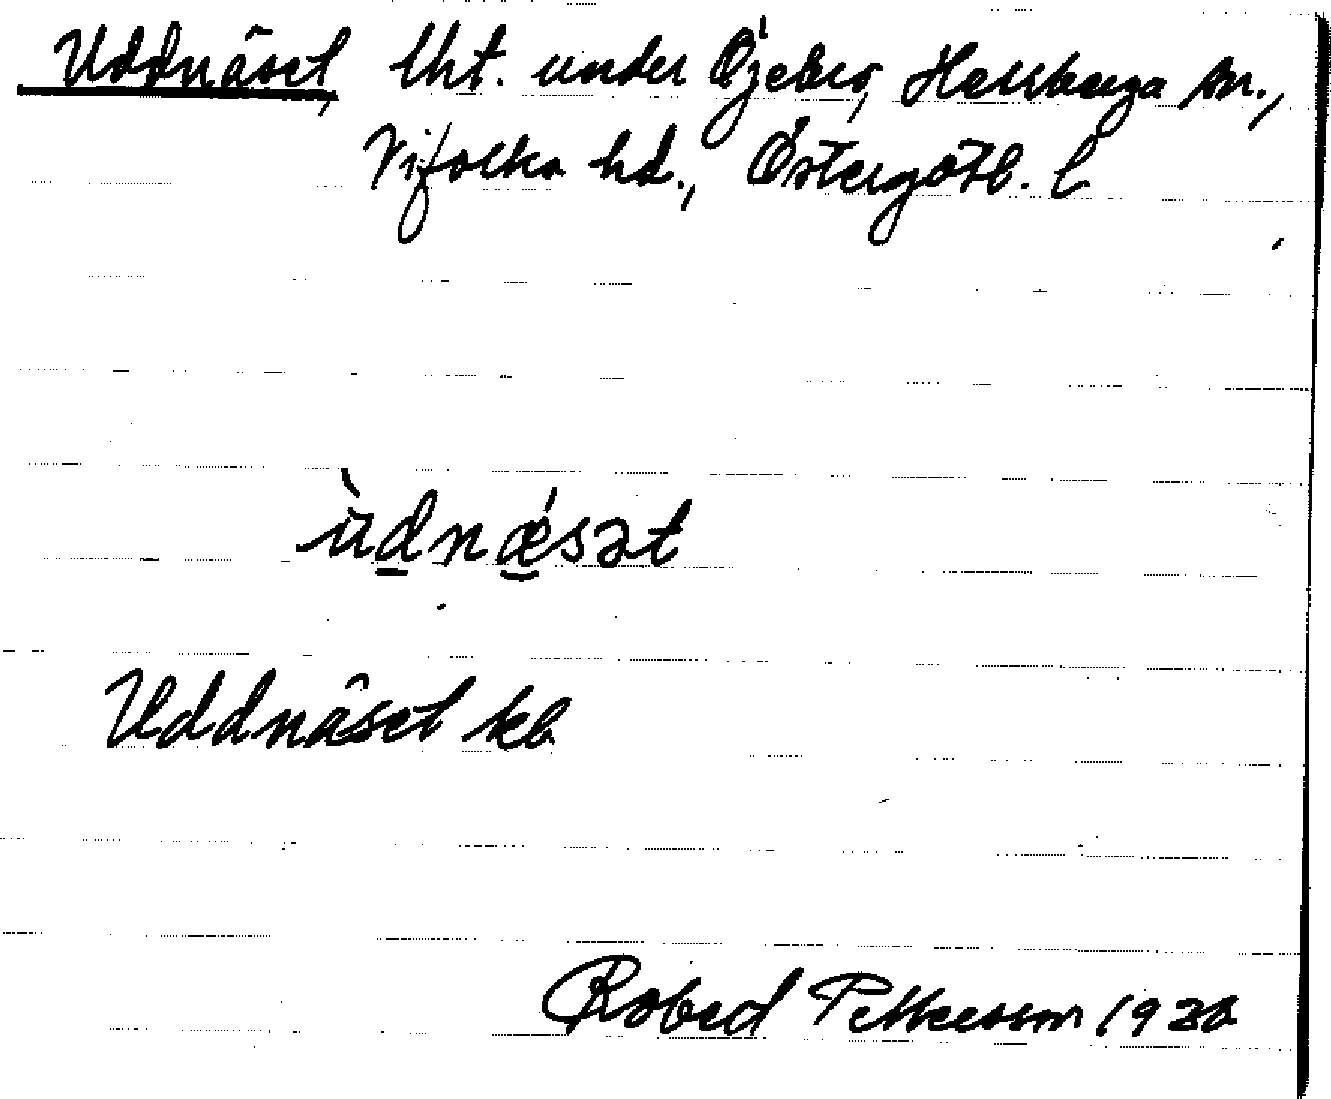 Uddnäset, lht. under Öjebro, Herrberga sn.,
Vifolka hd., Östergötl. l.
ùdnǽsət
Uddnäset kb
Robert Pettersson 1930